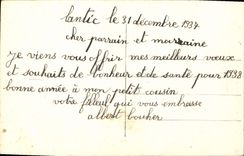 Lantic le 31 décembre 1937
cher parrain et marraine
je viens vous offrir mes meilleurs voeux
et souhaits de bonheur et de santé pour 1938
bonne année à mon petit cousin
votre filleul qui vous embrasse
albert boucher